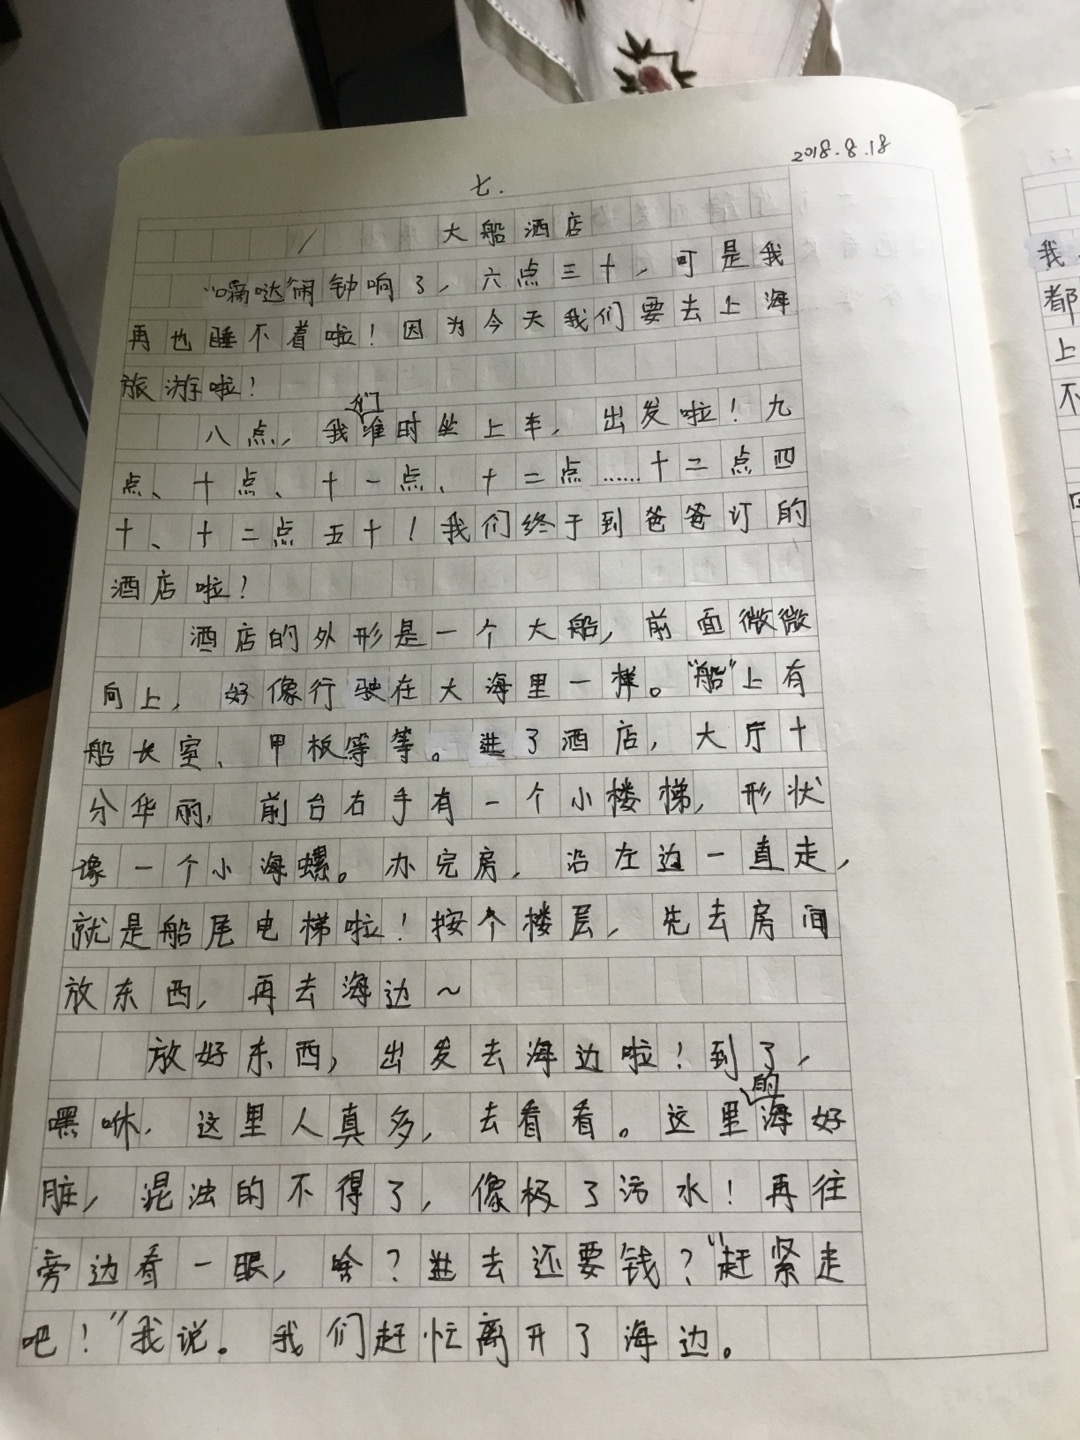 2018.8.18
七.
大船酒店
“嘀哒”闹钟响了，六点三十，可是我
再也睡不着啦！因为今天我们要去上海
旅游啦！
八点，我们准时坐上车，出发啦！九
点、十点、十一点、十二点……十二点四
十、十二点五十！我们终于到爸爸订的
酒店啦！
酒店的外形是一个大船，前面微微
向上，好像行驶在大海里一样。“船”上有
船长室、甲板等等。进了酒店，大厅十
分华丽，前台右手有一个小楼梯，形状
像一个小海螺。办完房，沿左边一直走，
就是船尾电梯啦！按个楼层，先去房间
放东西，再去海边～
放好东西，出发去海边啦！到了，
嘿咻，这里人真多，去看看。这里的海好
脏，混浊的不得了，像极了污水！再往
旁边看一眼，啥？进去还要钱？“赶紧走
吧！”我说。我们赶忙离开了海边。
我
都
上
不